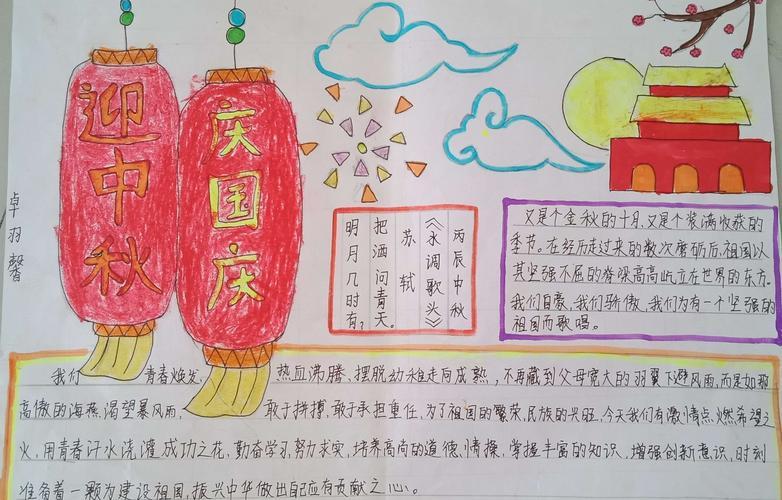 迎中秋
庆国庆
卓羽馨
丙辰中秋
《水调歌头》
苏轼
把洒问青天。
明月几时有?
又是个金秋的十月,又是个装满收获的
季节。在经历走过来的数次磨砺后,祖国以
其坚强不屈的脊梁高高屹立在世界的东方。
我们自豪,我们骄傲,我们为有一个坚强的
祖国而歌唱。
我们 青春焕发、 热血沸腾、摆脱幼稚走向成熟,不再藏到父母宽大的羽翼下避风雨,而是如那
高傲的海燕渴望暴风雨。 敢于拼搏,敢于承担重任,为了祖国的繁荣,民族的兴旺,今天我们有激情点燃希望之
火,用青春汗水浇灌成功之花,勤奋学习,努力求实,培养高尚的道德、情操,掌握丰富的知识,增强创新意识,时刻
准备着一颗为建设祖国,振兴中华做出自己应有贡献之心。